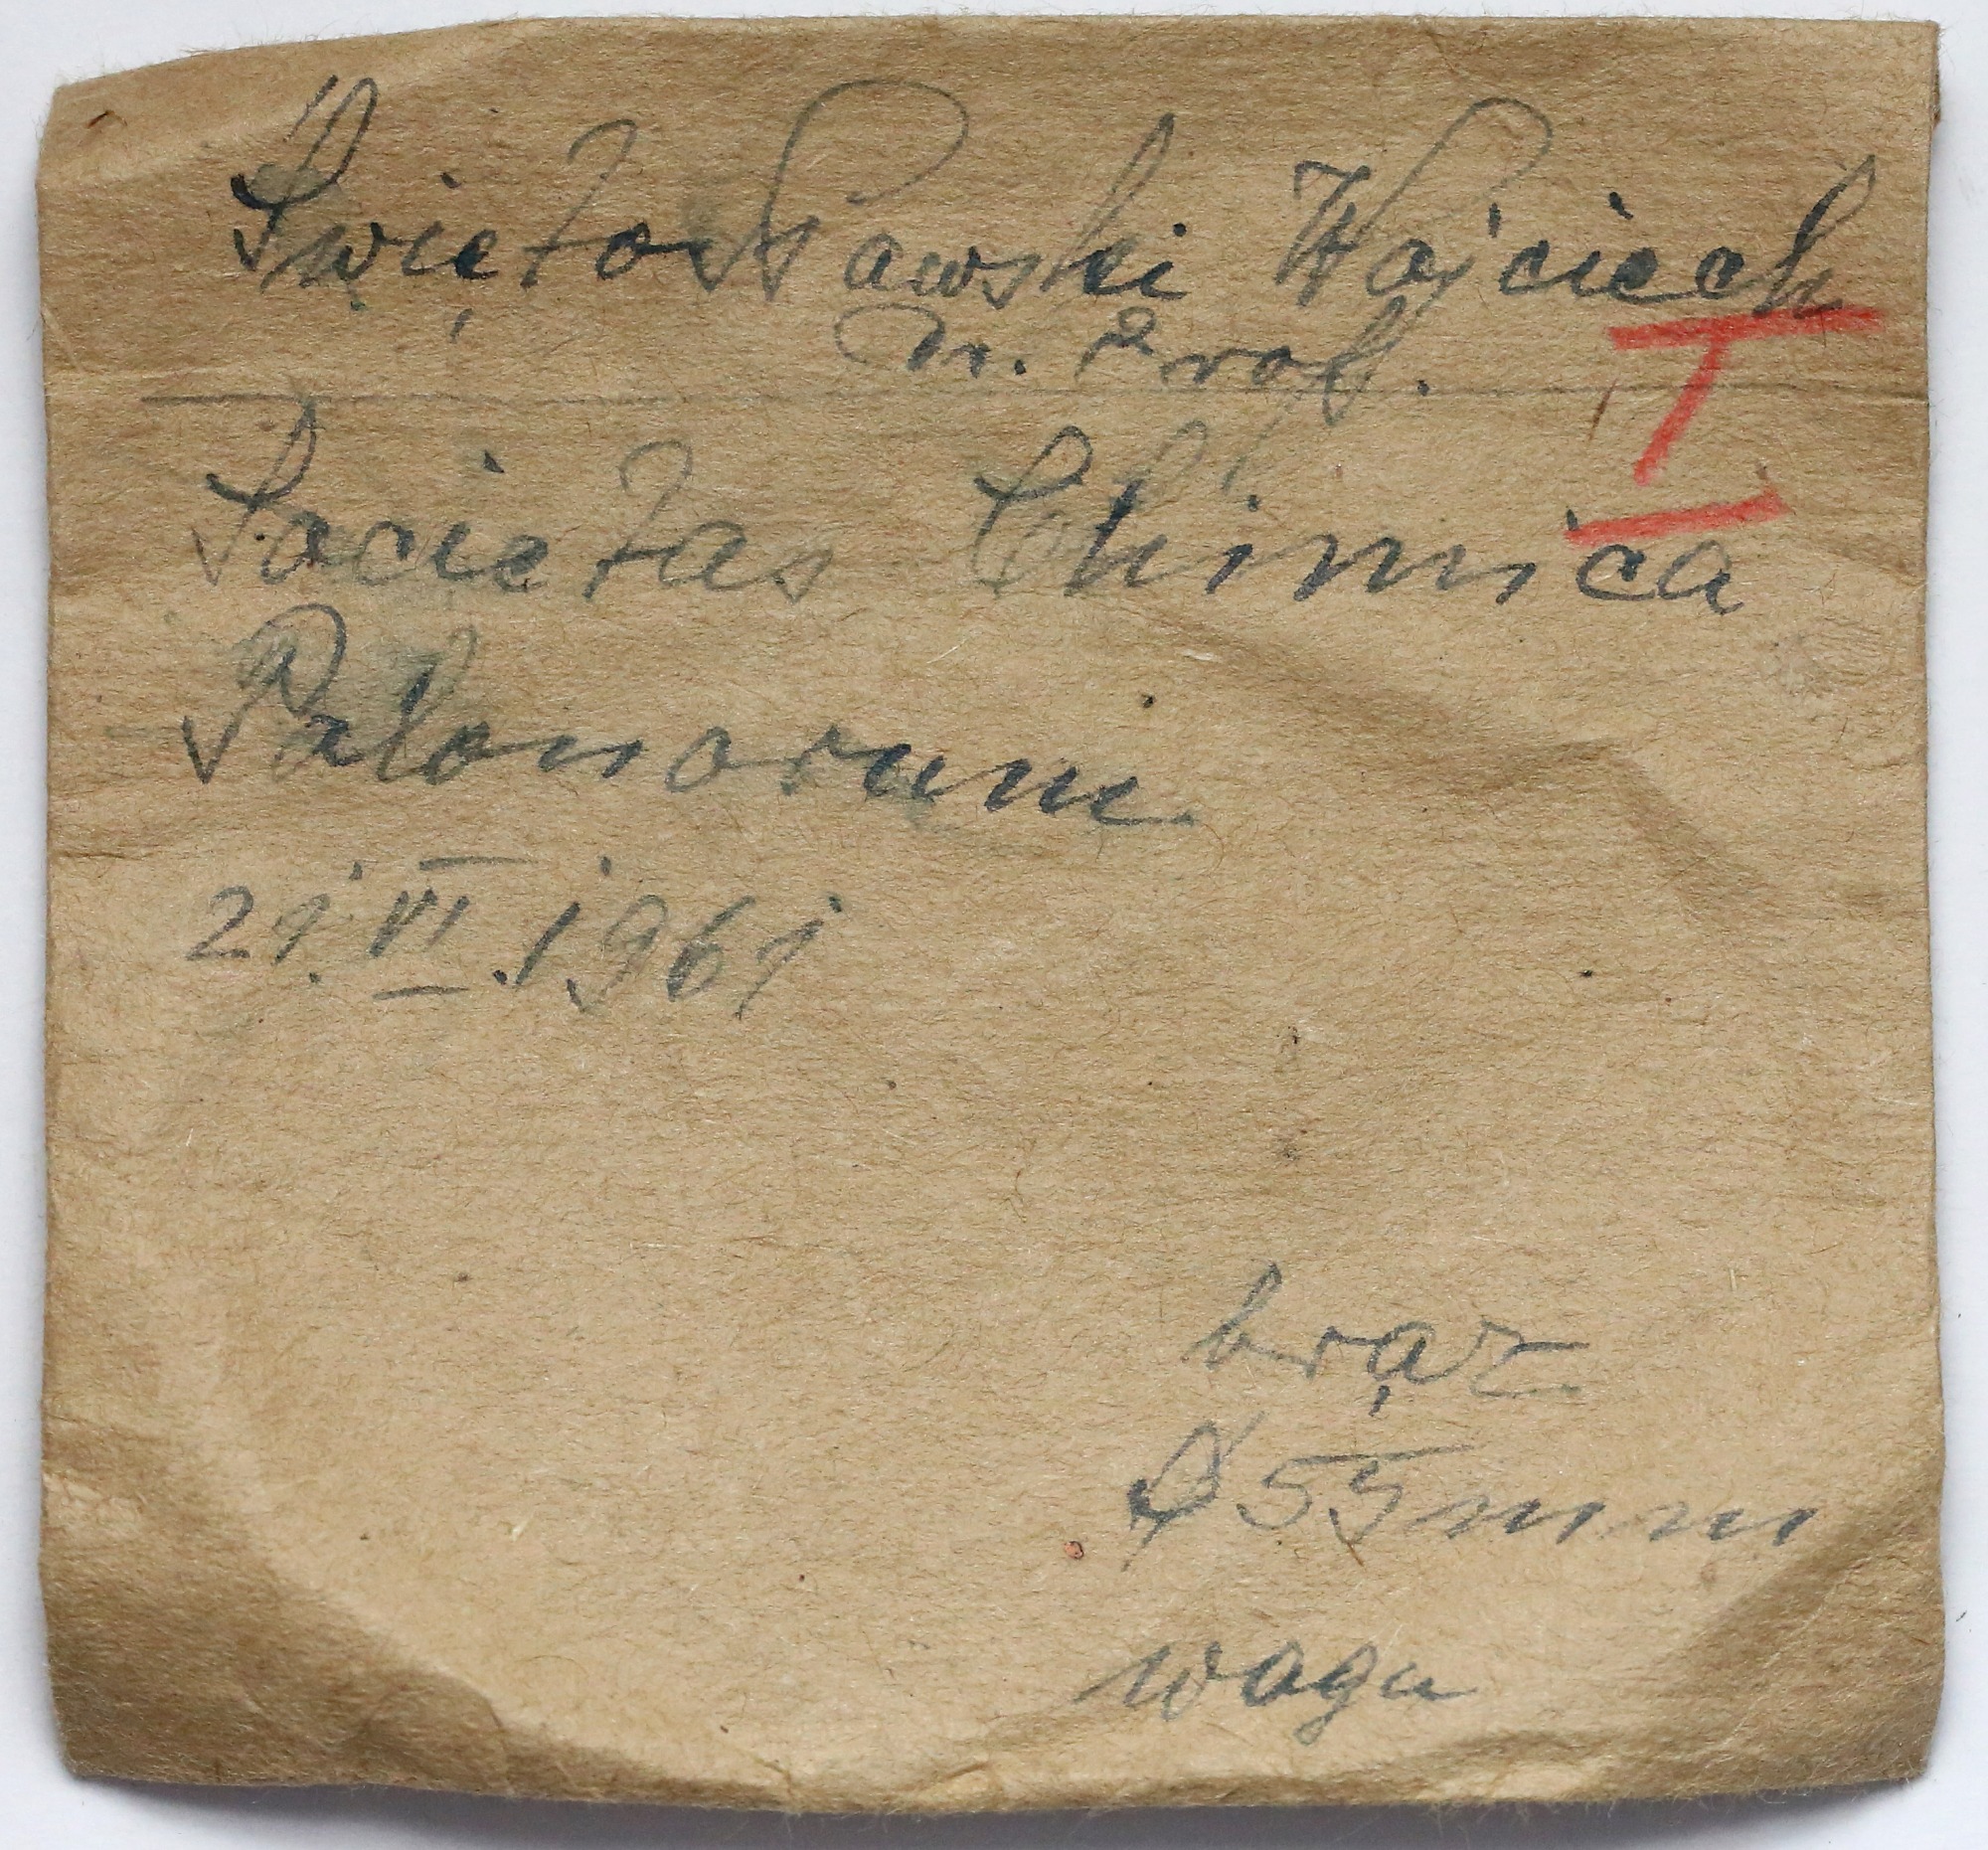 Świętosławski Wojciech
n. Prof.
I
Societas Chimica
Polonorum
21.VI.1961
brąz
Ø 55 mm
waga